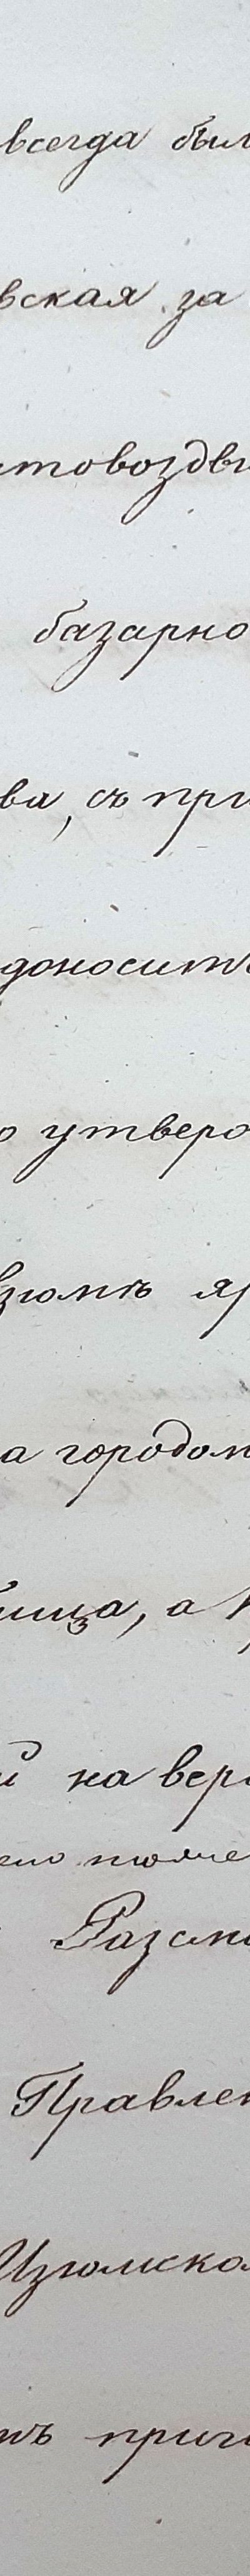 всегда был
вская за
товоздви
базарно
ва, съ при
доносит
о утверо
зюмѣ яр
а городом
ница, а К
й на вер
ею
Разсмо
Правлен
Изюмском
тъ причи